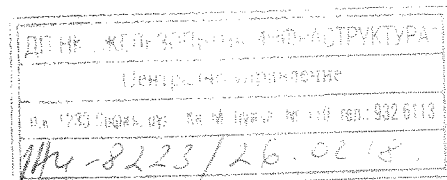 ДП НК „ЖЕЛЕЗОПЪТНА ИНФРАСТРУКТУРА“
Централно управление
п.к. 1233 София, бул. № 110 тел.: 932 6113
-8223/26.02.18.